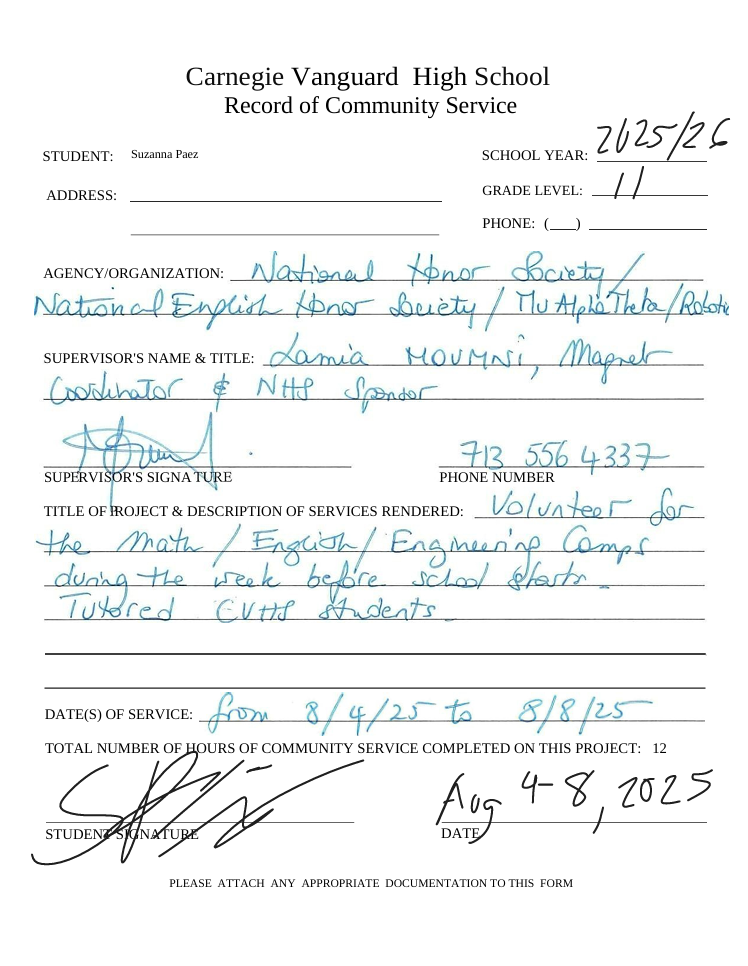 Carnegie Vanguard High School
Record of Community Service
STUDENT: Suzanna Paez
SCHOOL YEAR: 2025/26
ADDRESS:
GRADE LEVEL: 11
PHONE: (___)
AGENCY/ORGANIZATION: National Honor Society /
National English Honor Society / Mu Alpha Theta / Robotic
SUPERVISOR'S NAME & TITLE: Lamia MOUMNI, Magnet
Coordinator & NHS Sponsor
713 556 4337
SUPERVISOR'S SIGNATURE PHONE NUMBER
TITLE OF PROJECT & DESCRIPTION OF SERVICES RENDERED: Volunteer for
the Math / English / Engineering Camps
during the week before school starts.
Tutored CVHS students.
DATE(S) OF SERVICE: from 8/4/25 to 8/8/25
TOTAL NUMBER OF HOURS OF COMMUNITY SERVICE COMPLETED ON THIS PROJECT: 12
Aug 4-8, 2025
STUDENT SIGNATURE DATE
PLEASE ATTACH ANY APPROPRIATE DOCUMENTATION TO THIS FORM